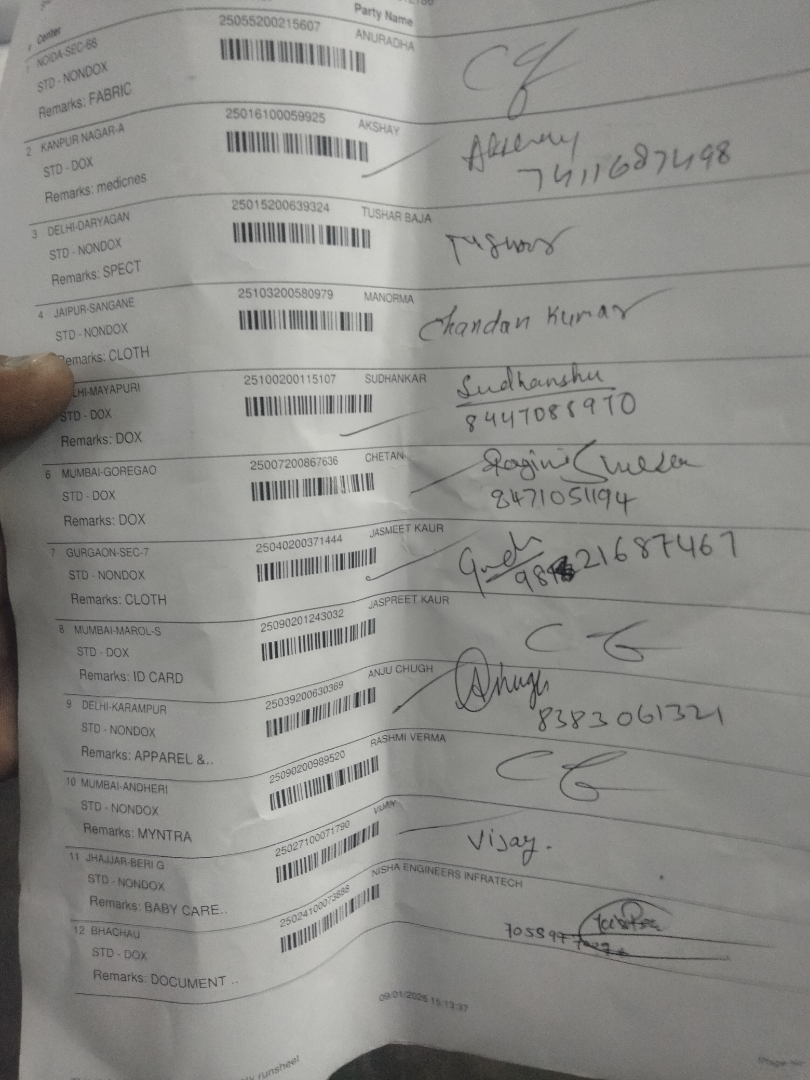 Party Name
Center
1 NOIDA-SEC-66 25055200215607 ANURADHA
STD - NONDOX
Remarks: FABRIC
2 KANPUR NAGAR-A 25016100059925 AKSHAY
STD - DOX
Remarks: medicnes 7411687498
3 DELHI-DARYAGAN 25015200639324 TUSHAR BAJA
STD - NONDOX
Remarks: SPECT
4 JAIPUR-SANGANE 25103200580979 MANORMA
STD - NONDOX Chandan Kumar
Remarks: CLOTH
MAYAPURI 25100200115107 SUDHANKAR Sudhanshu
STD - DOX 8447088970
Remarks: DOX
6 MUMBAI-GOREGAO 25007200867636 CHETAN
STD - DOX 8471051194
Remarks: DOX
7 GURGAON-SEC-7 25040200371444 JASMEET KAUR
STD - NONDOX 21687467
Remarks: CLOTH
8 MUMBAI-MAROL-S 25090201243032 JASPREET KAUR
STD - DOX
Remarks: ID CARD
9 DELHI-KARAMPUR 25039200630369 ANJU CHUGH
STD - NONDOX 8383061321
Remarks: APPAREL &..
10 MUMBAI-ANDHERI 25090200989520 RASHMI VERMA
STD - NONDOX
Remarks: MYNTRA
11 JHAJJAR-BERI G 25027100071790 VIJAY
STD - NONDOX Vijay.
Remarks: BABY CARE..
12 BHACHAU NISHA ENGINEERS INFRATECH
STD - DOX
Remarks: DOCUMENT ..
15:13:37
runsheet